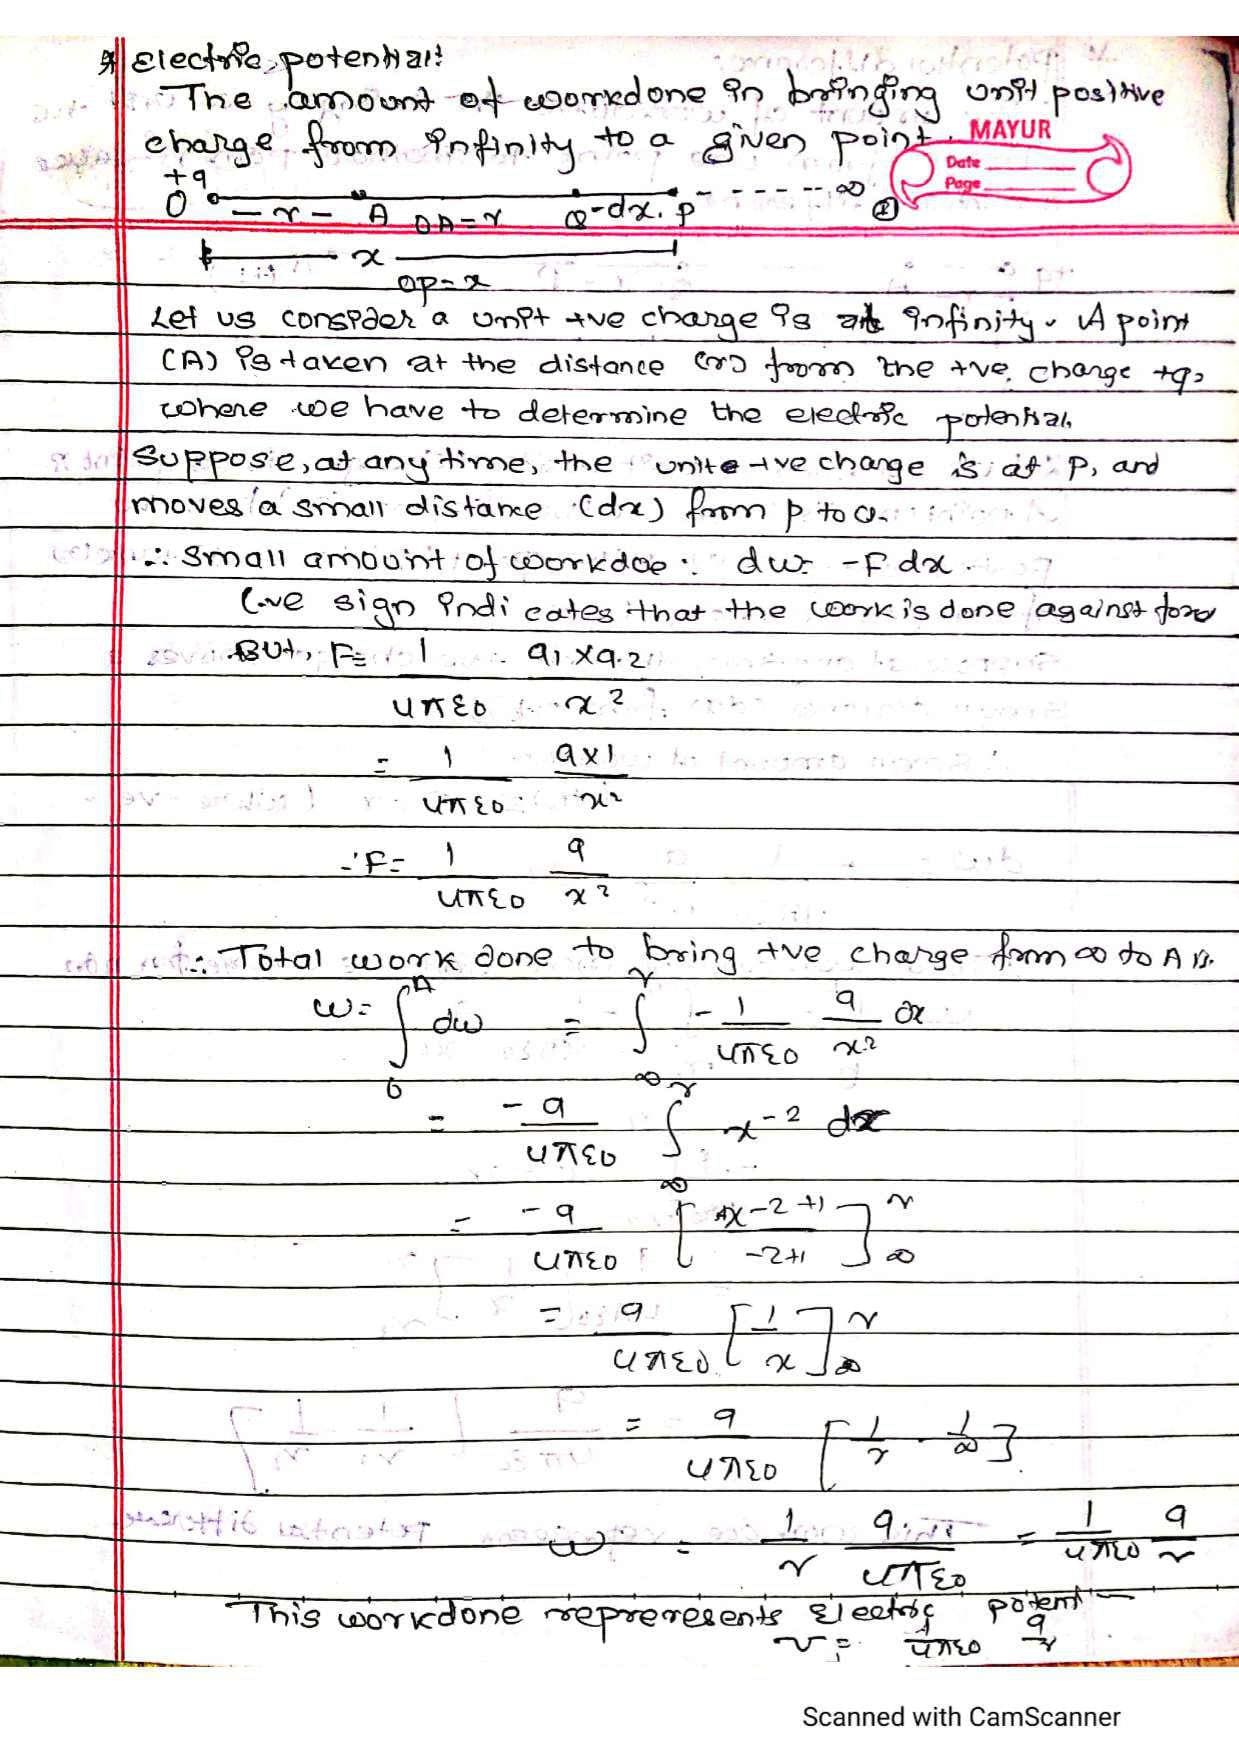 * Electric potential:
The amount of workdone in bringing unit positive
charge from infinity to a given point.
MAYUR
Date
Page
+q
O — r — A OA = r Q -dx. P - - - - - - ∞
x
OP = x
Let us consider a unit +ve charge is at infinity. A point
(A) is taken at the distance (r) from the +ve charge +q,
where we have to determine the electric potential.
Suppose, at any time, the unite +ve charge is at P, and
moves a small distance (dx) from P to Q.
∴ small amount of workdoe: dw = -F dx.
(-ve sign indicates that the work is done against force
But, F = 1/4πε0 q1 x q2/x²
= 1/4πε0 q x 1/x²
∴ F = 1/4πε0 q/x²
∴ Total work done to bring +ve charge from ∞ to A is.
w = ∫₀ᴬ dw = ∫∞ʳ -1/4πε0 q/x² dx
= -q/4πε0 ∫∞ʳ x⁻² dx
= -q/4πε0 [x-2+1/-2+1]ʳ∞
= q/4πε0 [1/x]ʳ∞
= q/4πε0 [1/r - 1/∞]
w = 1/r q/4πε0 = 1/4πε0 q/r
This workdone repreresents Electric potent
v = 1/4πε0 q/r
Scanned with CamScanner